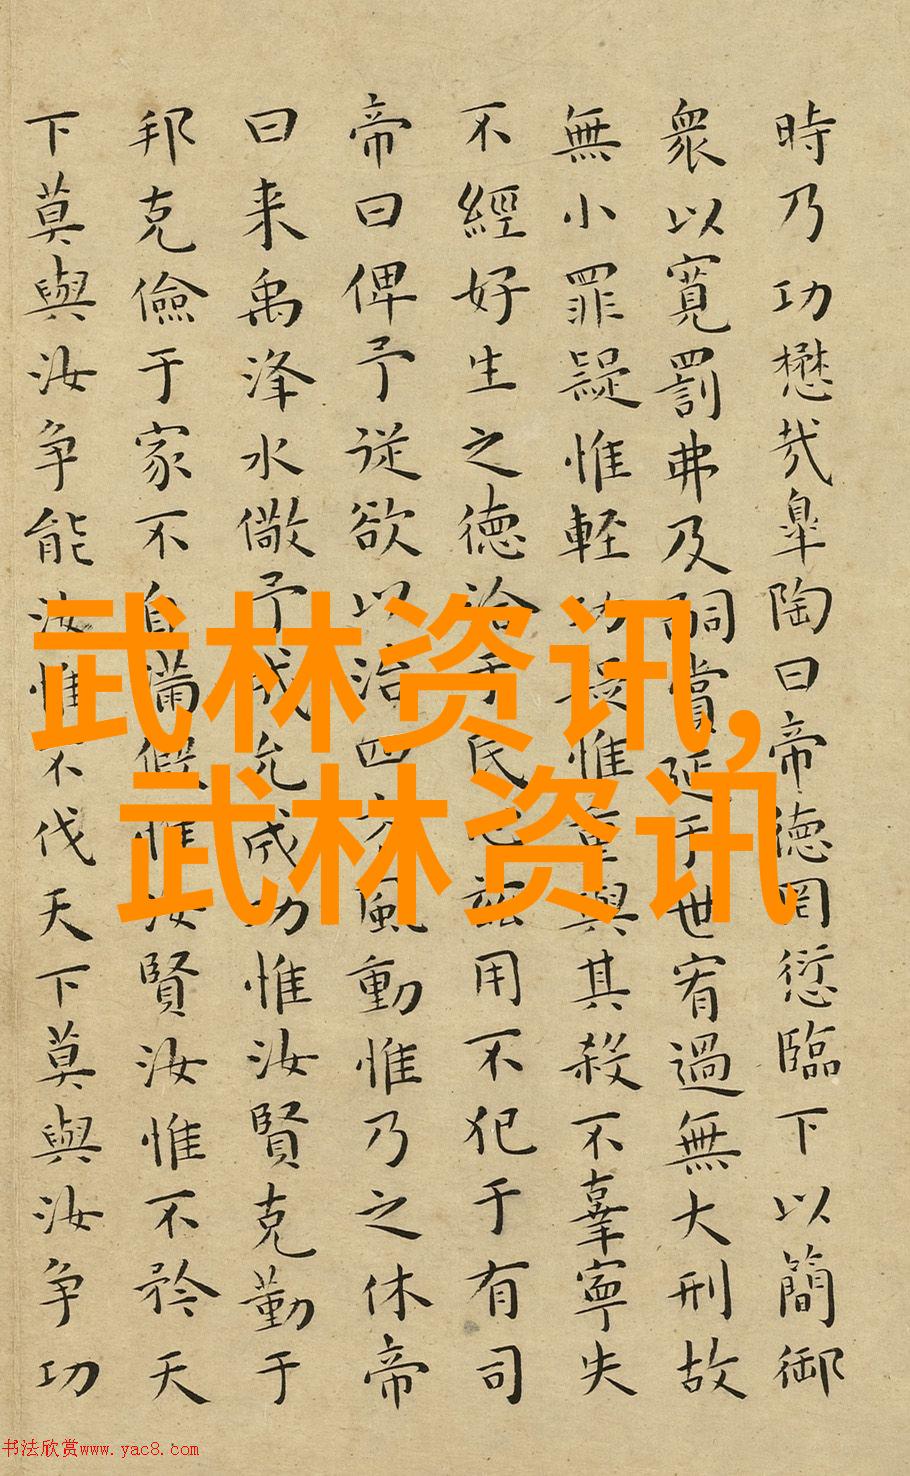 時乃功懋哉皐陶曰帝徳罔愆臨下以簡御
衆以寛罰弗及嗣賞延于世宥過無大刑故
無小罪疑惟軽功疑惟重與其殺不辜寧失
不經好生之徳洽于民心茲用不犯于有司
帝曰俾予従欲以治四方風動惟乃之休帝
曰来禹洚水儆予成允成功惟汝賢克勤于
邦克儉于家不自滿假惟汝賢汝惟不矜天
下莫與汝争能汝惟不伐天下莫與汝争功
武林资讯,
武林资讯
书法欣赏www.yac8.com